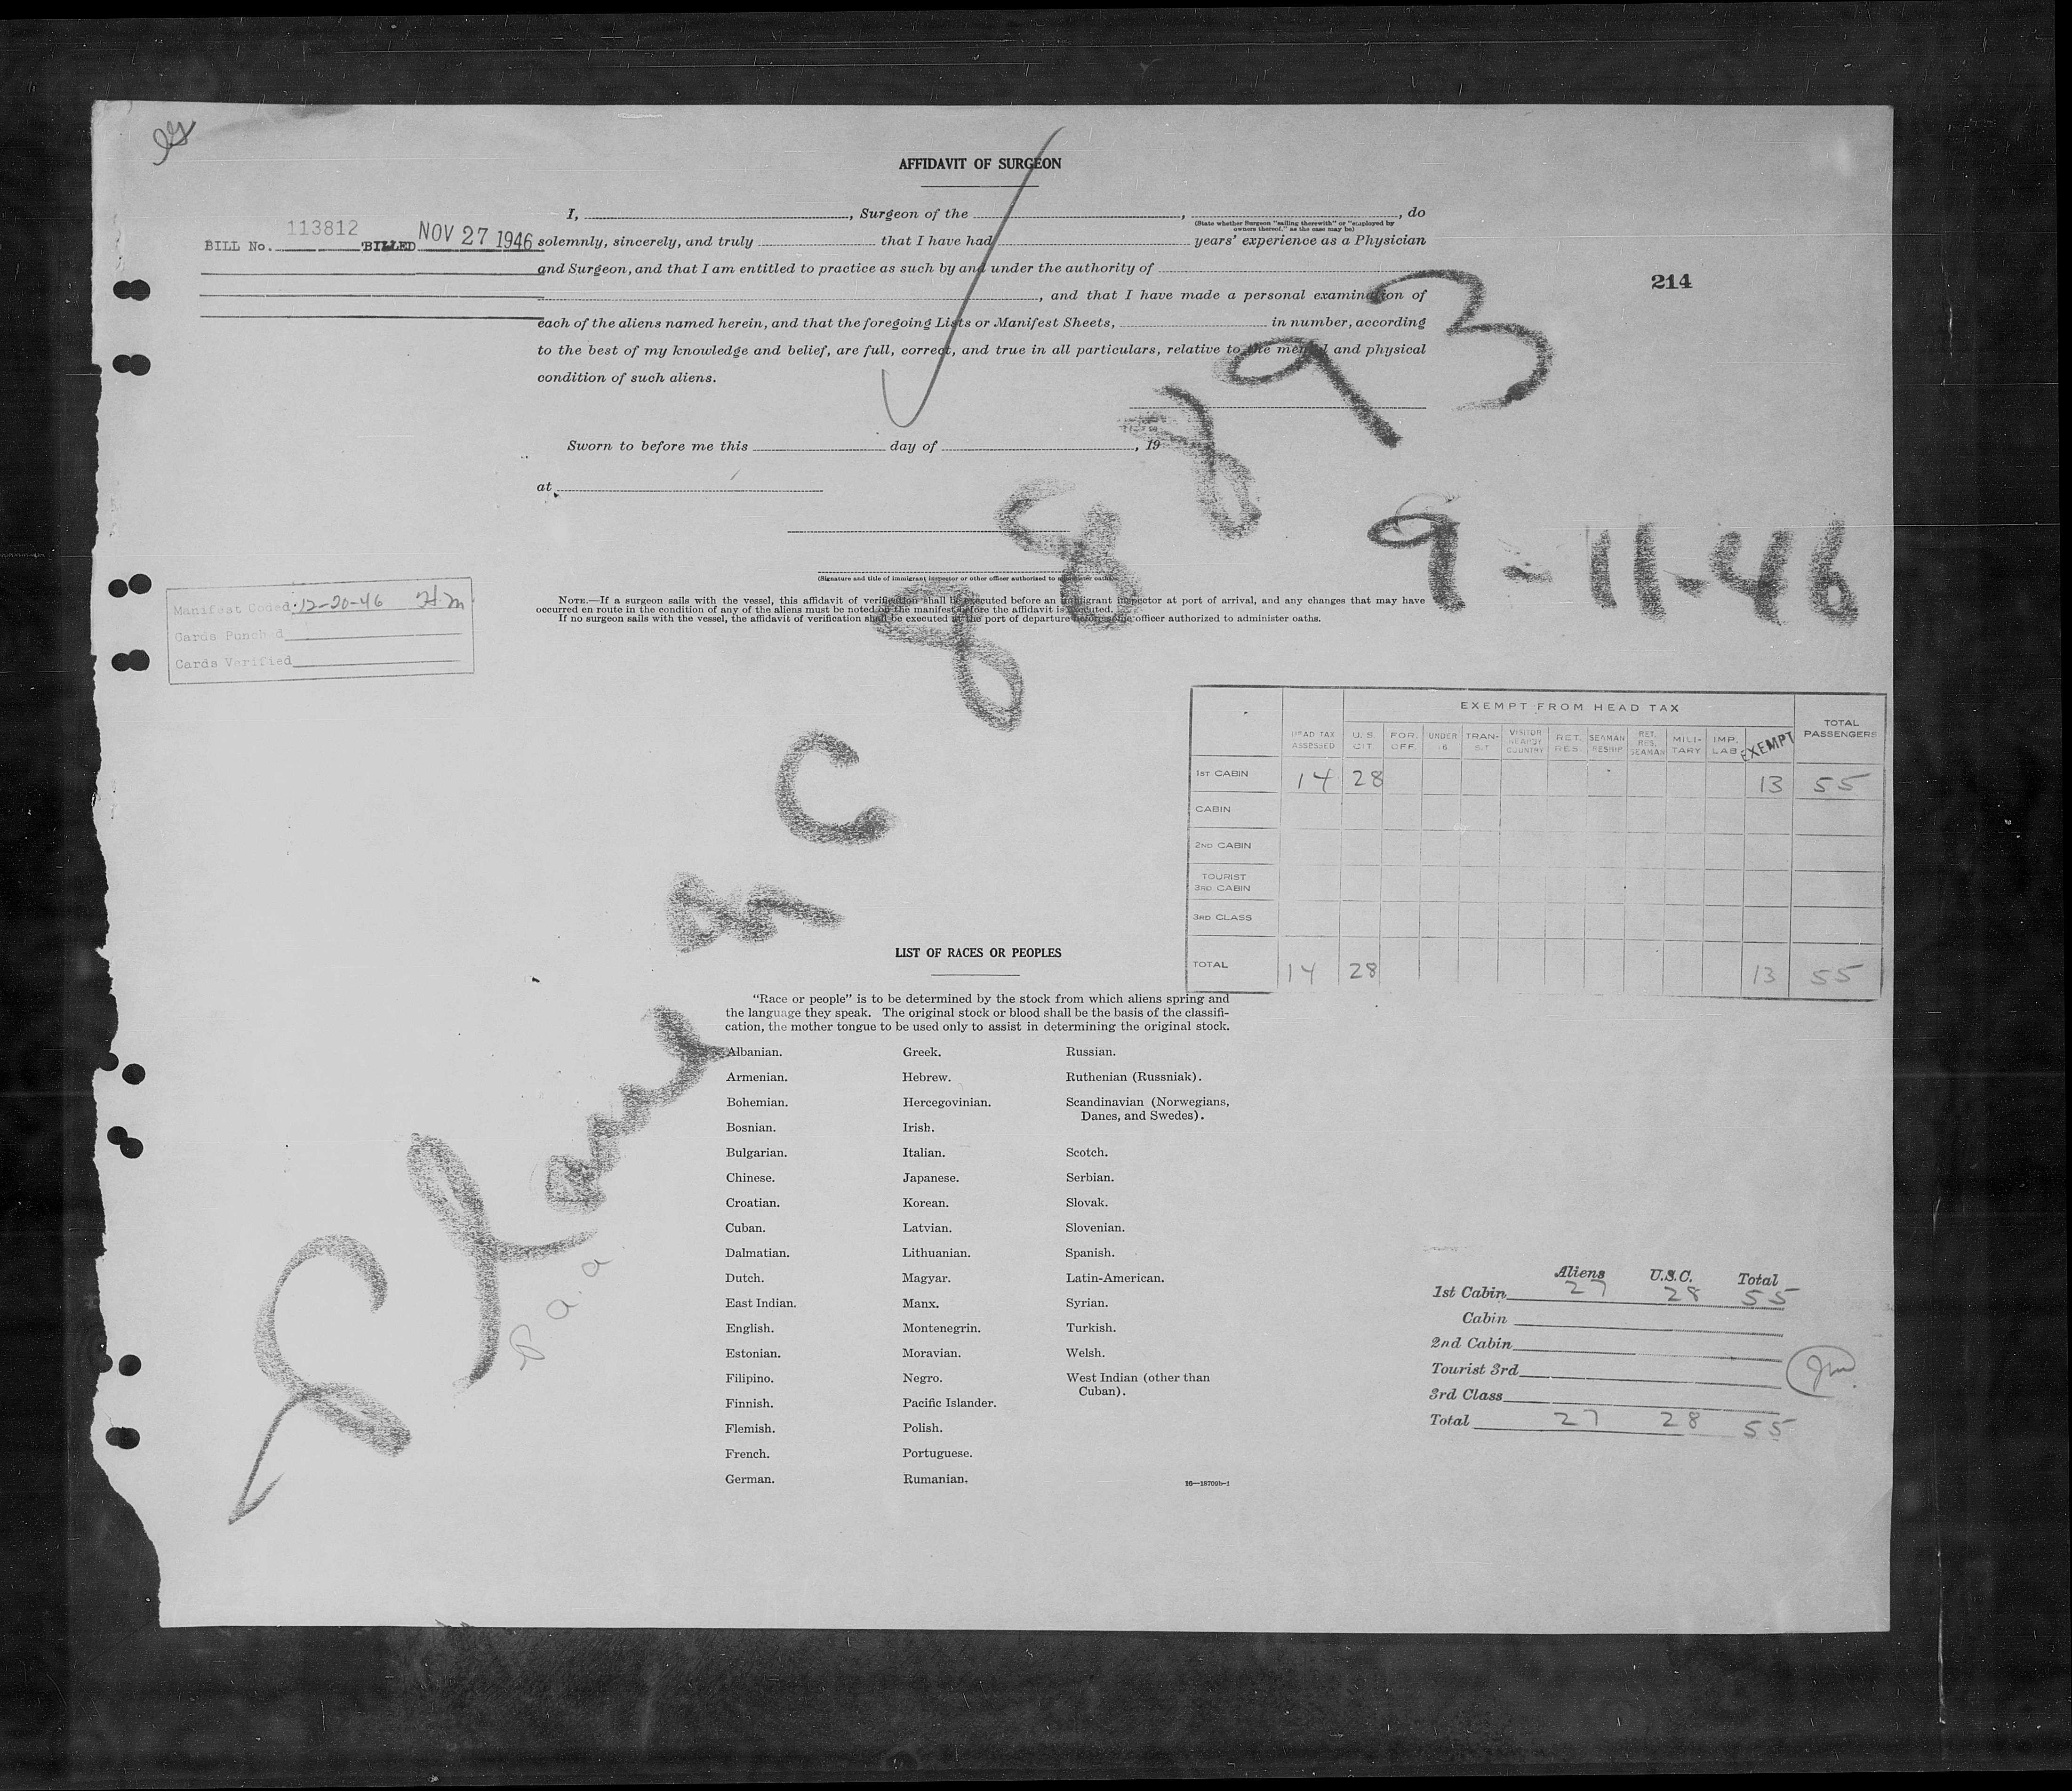 AFFIDAVIT OF SURGEON
I, , Surgeon of the , , do
(State whether Surgeon "sailing therewith" or "employed by
owners thereof," as the case may be)
BILL No. 113812 BILLED NOV 27 1946
solemnly, sincerely, and truly that I have had years' experience as a Physician
and Surgeon, and that I am entitled to practice as such by and under the authority of
214
, and that I have made a personal examination of
each of the aliens named herein, and that the foregoing Lists or Manifest Sheets, in number, according
to the best of my knowledge and belief, are full, correct, and true in all particulars, relative to the mental and physical
condition of such aliens.
Sworn to before me this day of , 19
at
(Signature and title of immigrant inspector or other officer authorized to administer oaths)
NOTE.—If a surgeon sails with the vessel, this affidavit of verification shall be executed before an immigrant inspector at port of arrival, and any changes that may have
occurred en route in the condition of any of the aliens must be noted on the manifest before the affidavit is executed.
If no surgeon sails with the vessel, the affidavit of verification shall be executed at the port of departure before some officer authorized to administer oaths.
Plane NC 88893
9-11-46
P.a.a
Manifest Coded 12-20-46 H.M
Cards Punched
Cards Verified
EXEMPT FROM HEAD TAX
HEAD TAX ASSESSED U. S. CIT. FOR. OFF. UNDER 16 TRANSIT VISITOR NEARBY COUNTRY RET. RES. SEAMAN RESHIP. RET. RES. SEAMAN MILITARY IMP. LAB EXEMPT TOTAL PASSENGERS
1ST CABIN 14 28 13 55
CABIN
2ND CABIN
TOURIST
3RD CABIN
3RD CLASS
TOTAL 14 28 13 55
LIST OF RACES OR PEOPLES
"Race or people" is to be determined by the stock from which aliens spring and
the language they speak. The original stock or blood shall be the basis of the classifi-
cation, the mother tongue to be used only to assist in determining the original stock.
Albanian.
Armenian.
Bohemian.
Bosnian.
Bulgarian.
Chinese.
Croatian.
Cuban.
Dalmatian.
Dutch.
East Indian.
English.
Estonian.
Filipino.
Finnish.
Flemish.
French.
German.
Greek.
Hebrew.
Hercegovinian.
Irish.
Italian.
Japanese.
Korean.
Latvian.
Lithuanian.
Magyar.
Manx.
Montenegrin.
Moravian.
Negro.
Pacific Islander.
Polish.
Portuguese.
Rumanian.
Russian.
Ruthenian (Russniak).
Scandinavian (Norwegians,
Danes, and Swedes).
Scotch.
Serbian.
Slovak.
Slovenian.
Spanish.
Latin-American.
Syrian.
Turkish.
Welsh.
West Indian (other than
Cuban).
16—18709b-1
Aliens U.S.C. Total
1st Cabin 27 28 55
Cabin
2nd Cabin
Tourist 3rd
3rd Class
Total 27 28 55